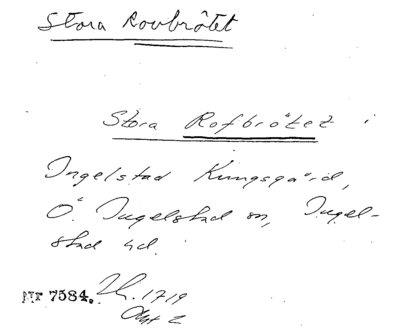 Stora Rovbrötet
Stora Rofbrötet i
Ingelstad Kungsgård,
Ö. Ingelstad sn, Ingel-
stad hd.
Nr 7584. 1719
Akt 2